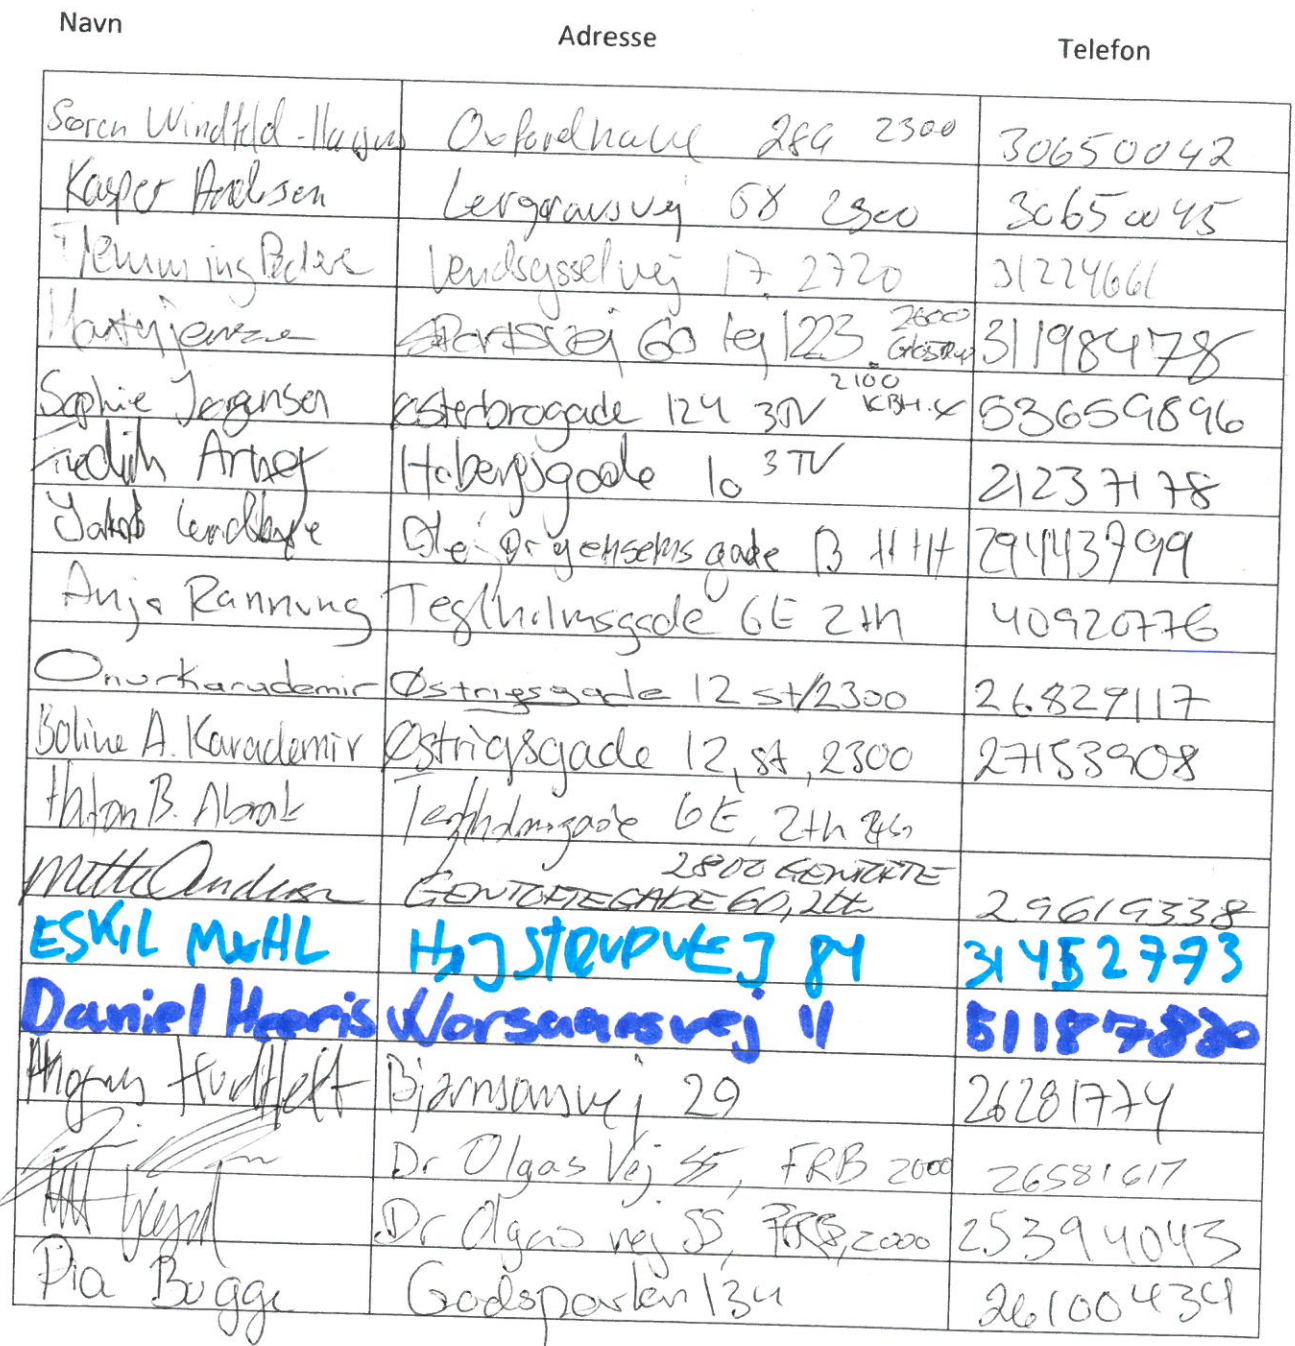 Navn Adresse Telefon
Søren Windfeld- Oxfordhave 284 2300 30650042
Kasper Andersen Lergravsvej 68 2300 30650045
Flemming Vendsysselvej 17. 2720 31224661
Sportsvej 60 lej 1223. 26000 Glostrup 31198478
Sophie Jørgensen Østerbrogade 124 3TV 2100 KBH. 53659896
10 3 TV 21237178
Jakob gade 13 29443799
Anja Rannung Teglholmsgade 6E 2th 40920776
Onur Karademir Østrigsgade 12 st/2300 26829117
Boline A. Karademir Østrigsgade 12, st, 2300 27153908
B. Teglholmsgade 6E, 2th
Mette Andersen GENTOFTEGADE 60, 2th 2800 GENTOFTE 29619338
ESKIL MUHL HØJSTRUPVEJ 84 31452773
Daniel Worsaaesvej 11 51187830
Bjørnsonsvej 29 26281774
Dr Olgas Vej 55, FRB 2000 26581617
Dr Olgas vej 55, FRB, 2000 25394043
Pia Bugge Godsparken 134 26100434